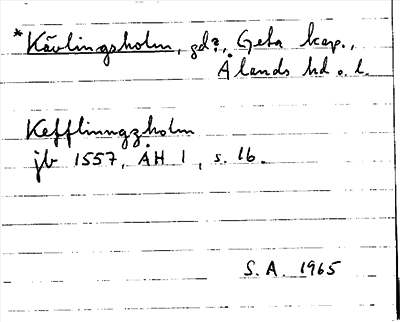 *Kävlingsholm, gd?, Geta kap.,
Ålands hd o. l.
Kefflinngzholm
jb 1557, ÅH 1, s. 16.
S. A. 1965